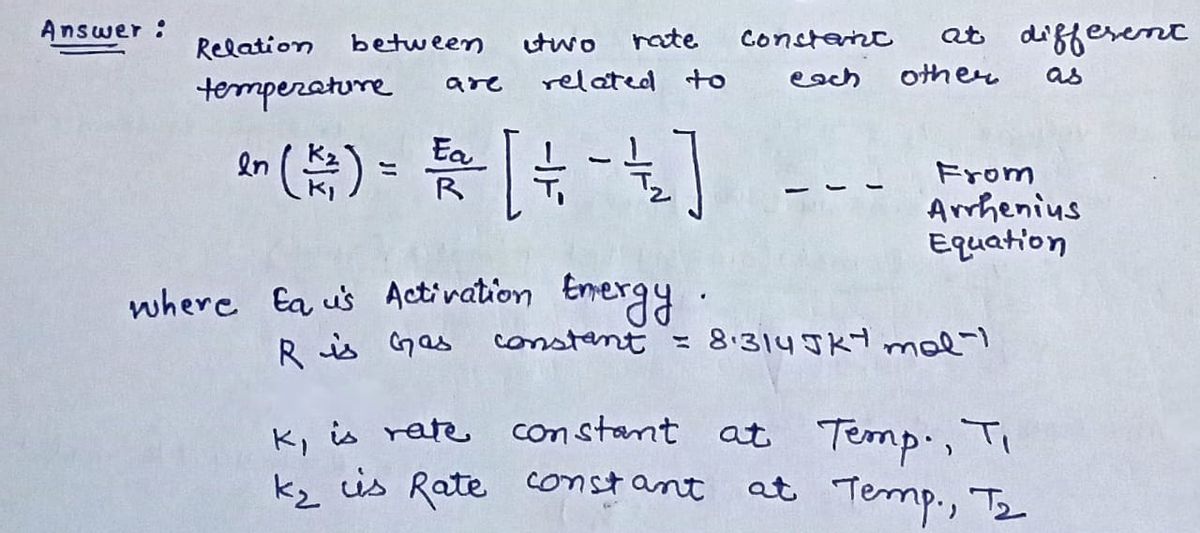 Answer : Relation between two rate constant at different
temperature are related to each other as
ln (K₂/K₁) = Ea/R [1/T₁ - 1/T₂] --- From
Arrhenius
Equation
where Ea is Activation Energy.
R is Gas constant = 8.314 JK⁻¹ mol⁻¹
K₁ is rate constant at Temp., T₁
K₂ is Rate constant at Temp., T₂